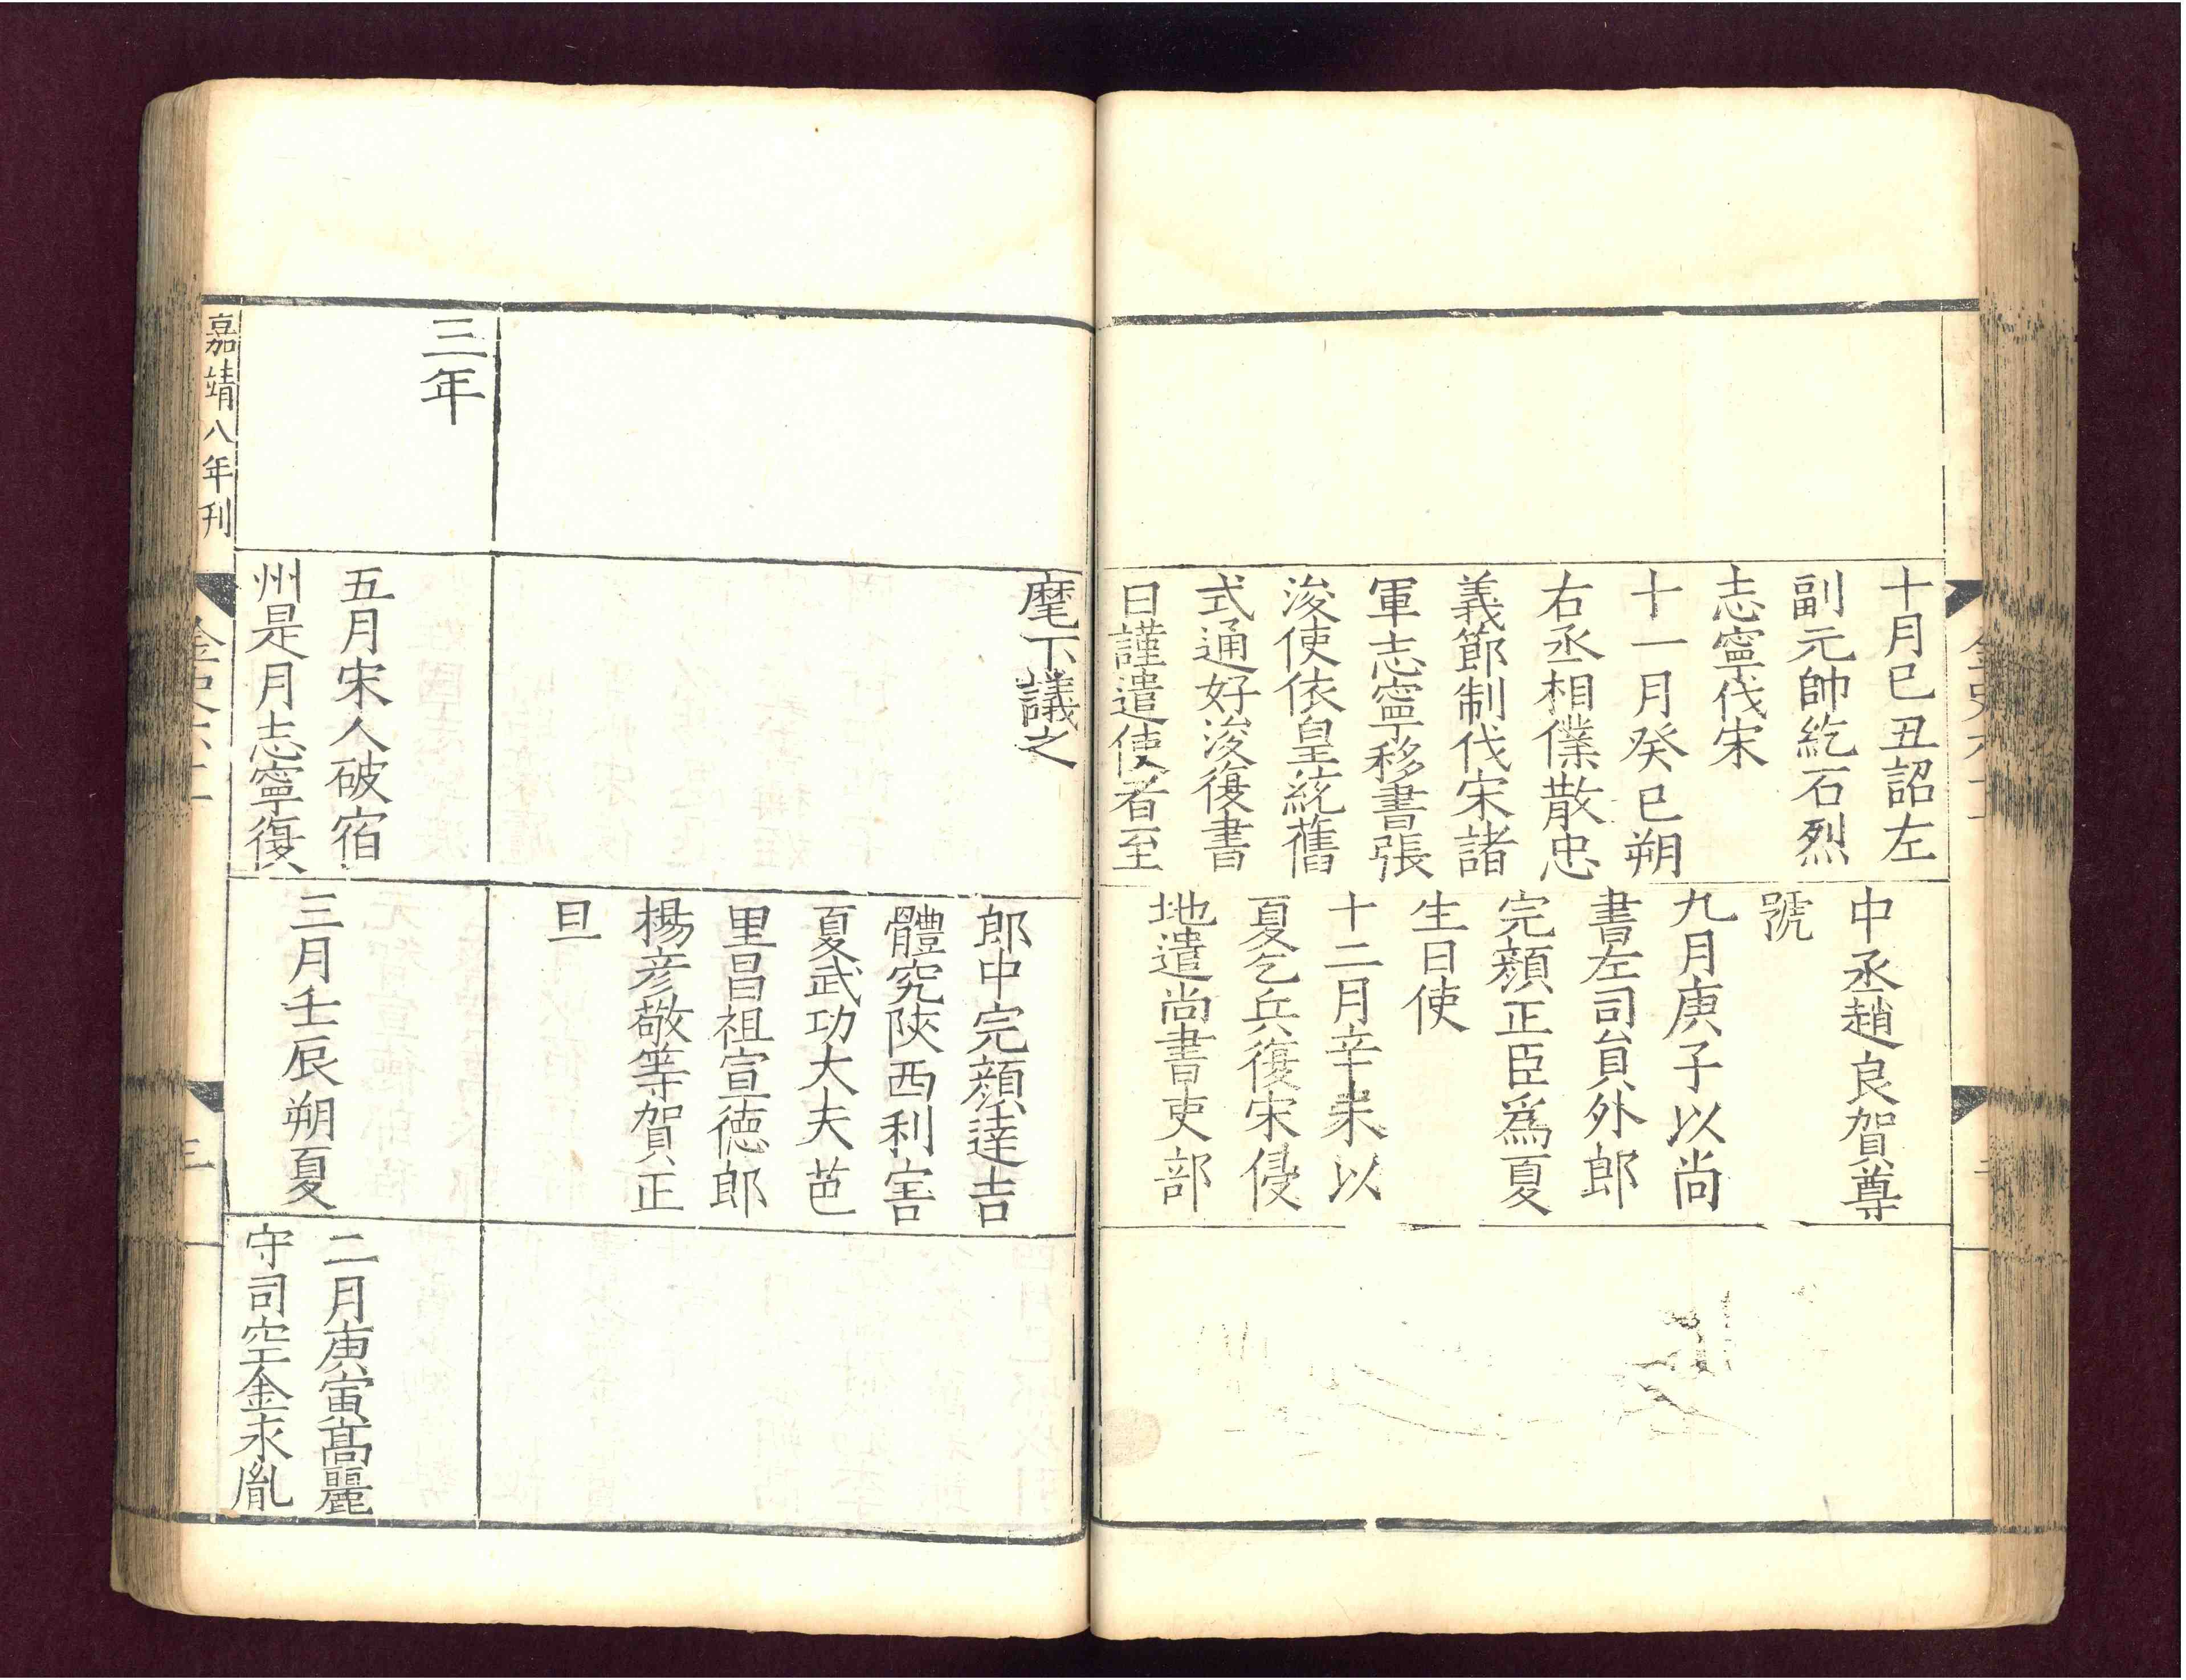 十月己丑詔左
副元帥紇石烈
志寧伐宋
十一月癸巳朔
右丞相僕散忠
義節制伐宋諸
軍志寧移書張
浚使依皇統舊
式通好浚復書
曰謹遣使者至
中丞趙良賀尊
號
九月庚子以尚
書左司貟外郎
完顏正臣爲夏
生日使
十二月辛未以
夏乞兵復宋侵
地遣尚書吏部
麾下議之
郎中完顏達吉
體究陝西利害
夏武功大夫芭
里昌祖宣德郎
楊彦敬等賀正
旦
三年
五月宋人破宿
州是月志寧復
三月壬辰朔夏
二月庚寅髙麗
守司空金永胤
嘉靖八年刊
三